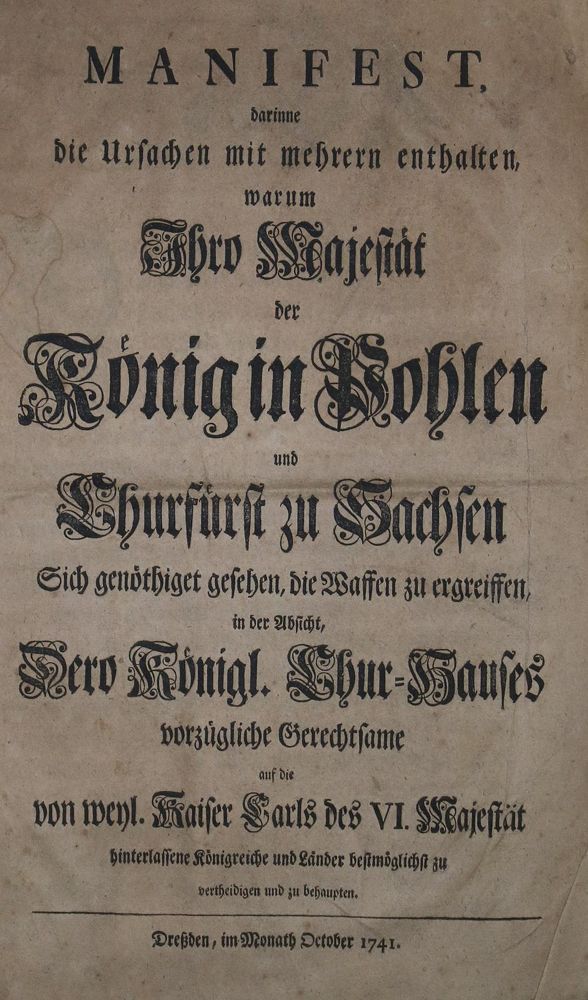 MANIFEST,
darinne
die Ursachen mit mehrern enthalten,
warum
Ihro Majestät
der
König in Pohlen
und
Churfürst zu Sachsen
Sich genöthiget gesehen, die Waffen zu ergreiffen,
in der Absicht,
Dero Königl. Chur-Hauses
vorzügliche Gerechtsame
auf die
von weyl. Kaiser Carls des VI. Majestät
hinterlassene Königreiche und Länder bestmöglichst zu
vertheidigen und zu behaupten.
Dreßden, im Monath October 1741.